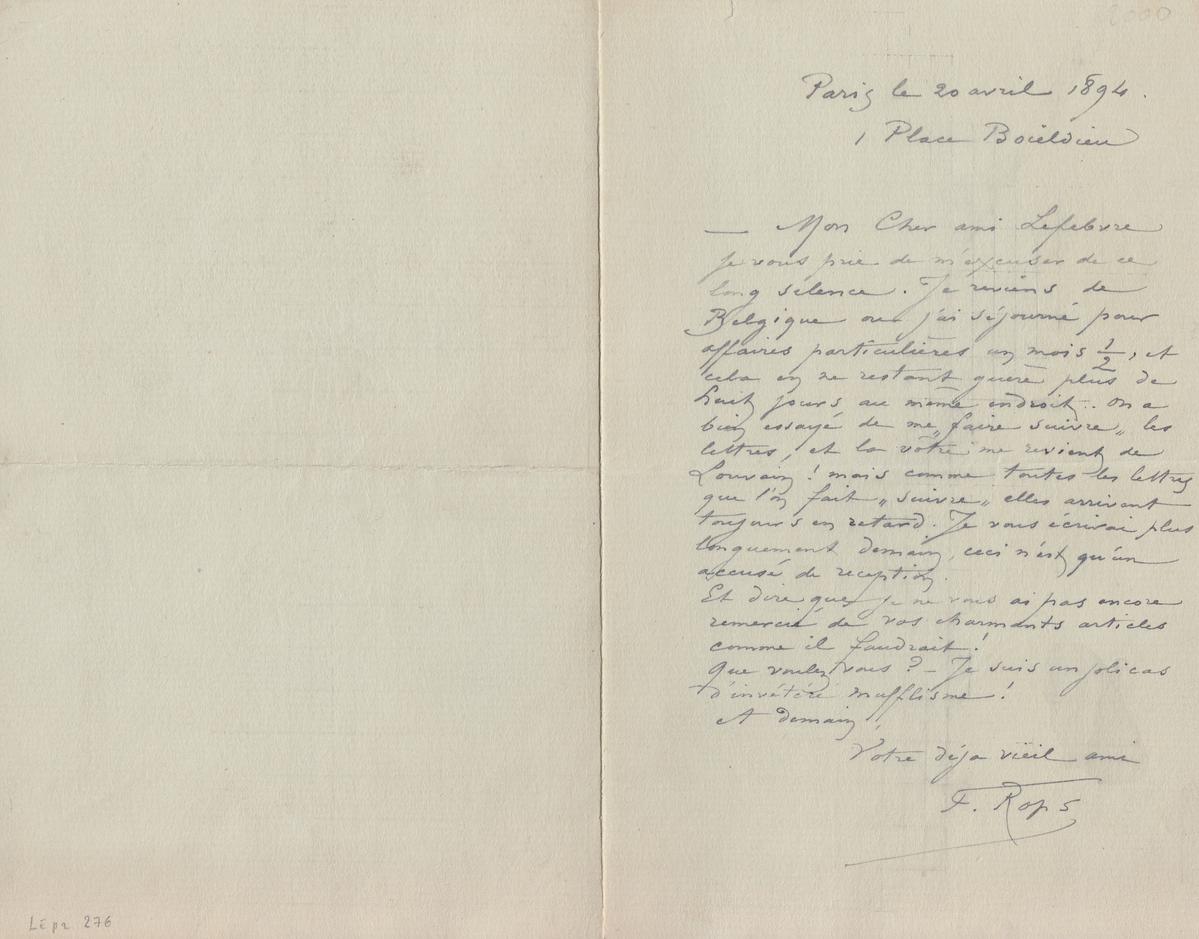 2000
Paris le 20 avril 1894.
1 Place Boieldieu
— Mon Cher ami Lefebvre
je vous prie de m'excuser de ce
long silence. Je reviens de
Belgique ou j'ai séjourné pour
affaires particulières un mois 1/2, et
cela en ne restant guère plus de
huit jours au même endroit.. On a
bien essayé de me „faire suivre„ les
lettres, et la vôtre me revient de
Louvain ! mais comme toutes les lettres
que l'on fait „suivre„ elles arrivent
toujours en retard. Je vous écrirai plus
longuement demain, ceci n'est qu'un
accusé de reception.
Et dire que je ne vous ai pas encore
remercié de vos charmants articles
comme il faudrait !
Que voulez vous ? – Je suis un joli cas
d'invétéré mufflisme !
A demain,
Votre déja vieil ami
F. Rops
LEpr 276